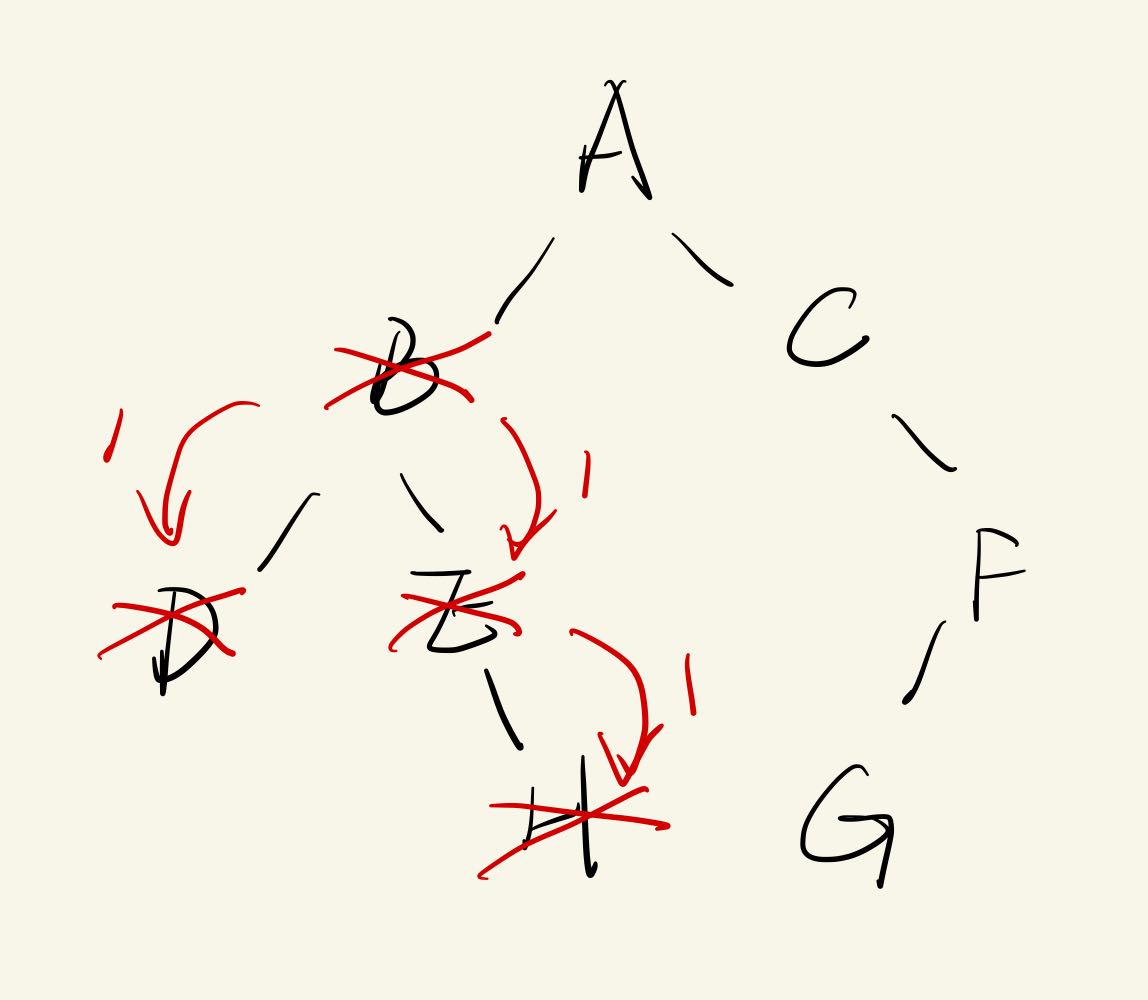 A
B C
1 1
D E F
1
H G